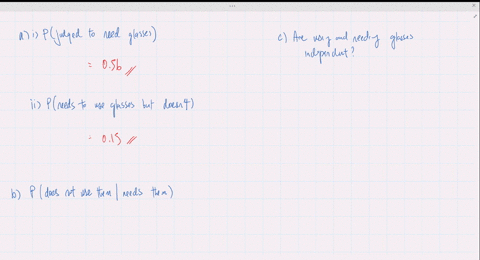 a) i) P(judged to need glasses)
= 0.56
ii) P(needs to use glasses but doesn't)
= 0.15
b) P(does not use them | needs them)
c) Are using and needing glasses
independent?